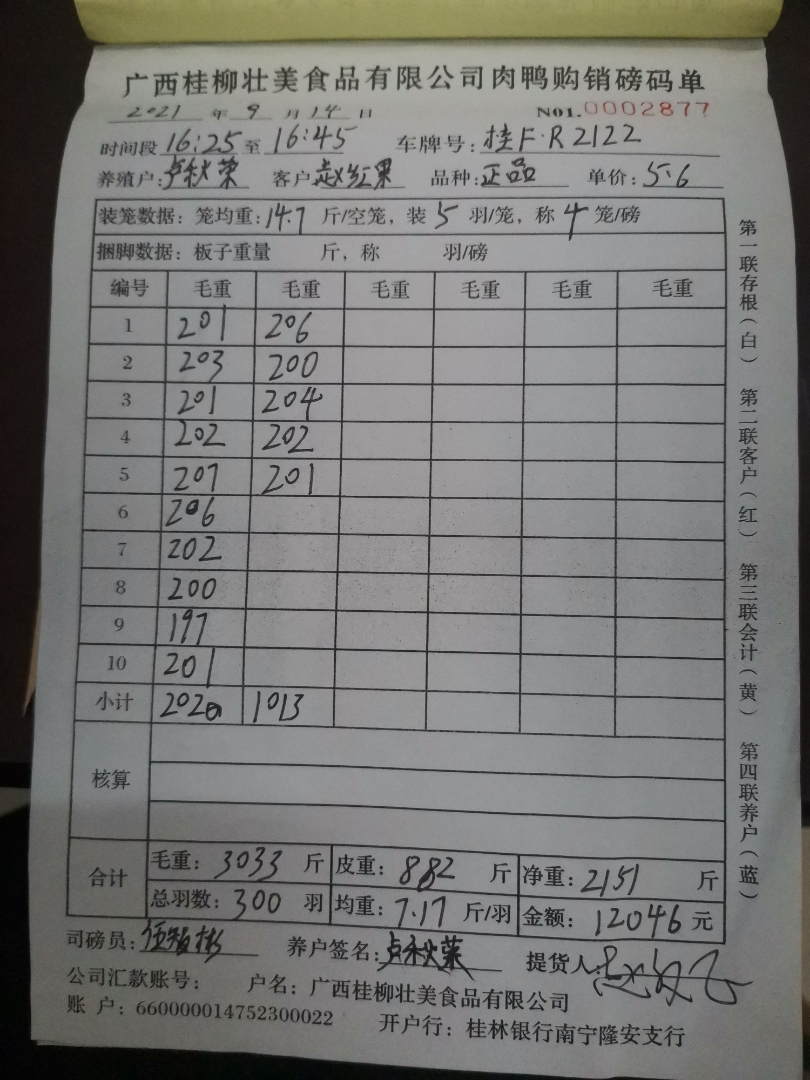 广西桂柳壮美食品有限公司肉鸭购销磅码单
2021 年 9 月 14 日 NO1.0002877
时间段 16:25 至 16:45 车牌号: 桂F·R2122
养殖户: 卢秋荣 客户 赵红果 品种: 正品 单价: 5.6
装笼数据: 笼均重: 14.7 斤/空笼, 装 5 羽/笼, 称 4 笼/磅
捆脚数据: 板子重量 斤, 称 羽/磅
编号 毛重 毛重 毛重 毛重 毛重 毛重
1 201 206
2 203 200
3 201 204
4 202 202
5 207 201
6 206
7 202
8 200
9 197
10 201
小计 2020 1013
核算
合计 毛重: 3033 斤 皮重: 882 斤 净重: 2151 斤
总羽数: 300 羽 均重: 7.17 斤/羽 金额: 12046 元
司磅员: 养户签名: 卢秋荣 提货人:
公司汇款账号: 户名: 广西桂柳壮美食品有限公司
账 户: 660000014752300022 开户行: 桂林银行南宁隆安支行
第一联存根(白) 第二联客户(红) 第三联会计(黄) 第四联养户(蓝)